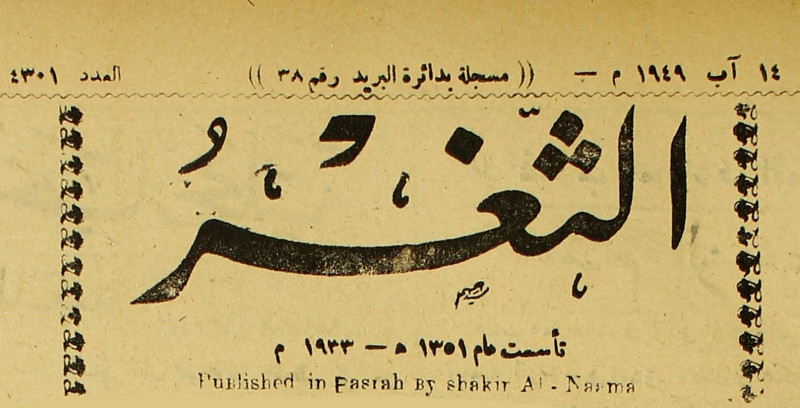 ١٤ آب ١٩٤٩ م — (( مسجلة بدائرة البريد رقم ٣٨ )) العدد ٤٣٠١
الثَّغْرُ
تأسست عام ١٣٥١ ه — ١٩٣٣ م
Published in Basrah By shakir Al - Naama